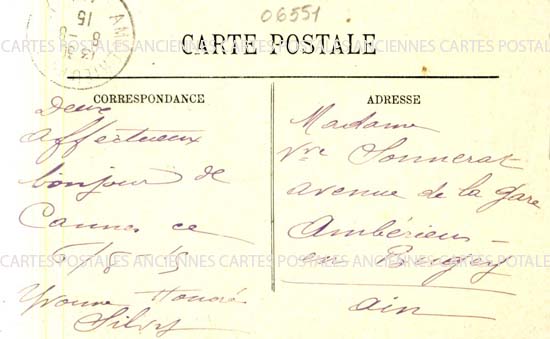 06551
AMBERIEU
15
8
13
CARTES POSTALES ANCIENNES CARTES POSTALES ANCIENNES CARTES POSTALES
CARTE POSTALE
CORRESPONDANCE
Deux
affectueux
bonjour de
Cannes ce
6/8 - 15
Yvonne Honoré
Silvy
ADRESSE
Madame
Vve Sonnerat
avenue de la gare
Ambérieu -
en Bugey
ain
CARTES POSTALES ANCIENNES CARTES POSTALES ANCIENNES CARTES POSTALES